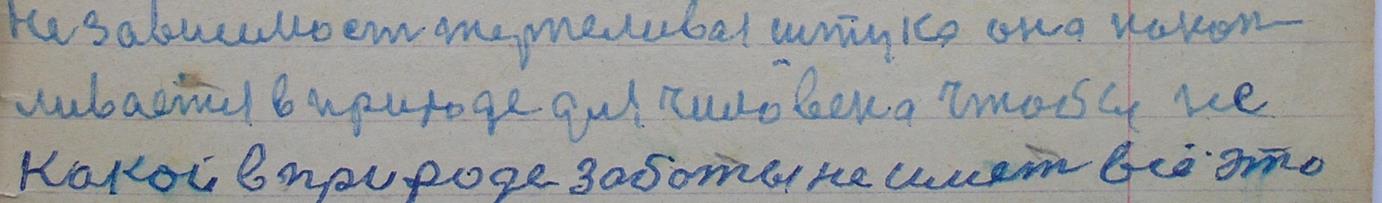 Независимост терпеливая штука она накоп-
ливается в природе для чиловека чтобы не
Какой в природе заботы не имет всё это